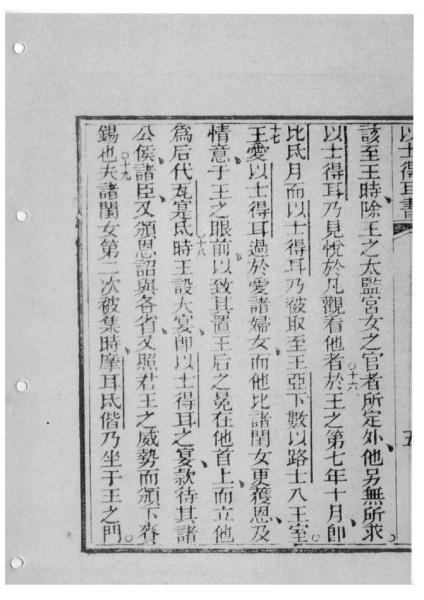 以士得耳書
五
該至王時除王之太監宮女之官者所定外他另無所求
以士得耳乃見悅於凡觀看他者○十六於王之第七年十月卽
比氐月而以士得耳乃被取至王亞下數以路士入王室
十七王愛以士得耳過於愛諸婦女而他比諸閨女更獲恩及
情意于王之眼前以致其置王后之冕在他首上而立他
爲后代瓦寔氐十八時王設大宴卽以士得耳之宴款待其諸
公侯諸臣又頒恩詔與各省又照君王之威勢而頒下賚
錫也○十九夫諸閨女第二次被集時摩耳氐偕乃坐于王之門